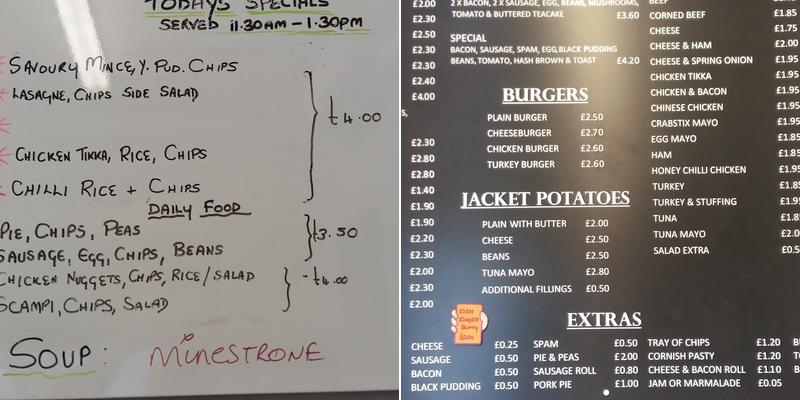 TODAYS SPECIALS
SERVED 11.30AM - 1.30PM
SAVOURY MINCE, Y. PUD. CHIPS
LASAGNE, CHIPS SIDE SALAD
£4.00
CHICKEN TIKKA, RICE, CHIPS
CHILLI RICE + CHIPS
DAILY FOOD
PIE, CHIPS, PEAS
£3.50
SAUSAGE, EGG, CHIPS, BEANS
CHICKEN NUGGETS, CHIPS, RICE/SALAD
- £4.00
SCAMPI, CHIPS, SALAD
SOUP: MINESTRONE
£2.00
£2.30
£2.50
£2.30
£2.30
£2.40
£4.00
£2.30
£2.80
£2.80
£1.40
£1.90
£1.90
£2.20
£2.30
£2.00
£2.30
£2.00
2 X BACON, 2 X SAUSAGE, EGG, BEANS, MUSHROOMS,
TOMATO & BUTTERED TEACAKE £3.60
SPECIAL
BACON, SAUSAGE, SPAM, EGG,BLACK PUDDING
BEANS,TOMATO, HASH BROWN & TOAST £4.20
BURGERS
PLAIN BURGER £2.50
CHEESEBURGER £2.70
CHICKEN BURGER £2.60
TURKEY BURGER £2.60
JACKET POTATOES
PLAIN WITH BUTTER £2.00
CHEESE £2.50
BEANS £2.50
TUNA MAYO £2.80
ADDITIONAL FILLINGS £0.50
BEEF
CORNED BEEF £1.85
CHEESE £1.75
CHEESE & HAM £2.00
CHEESE & SPRING ONION £1.95
CHICKEN TIKKA £1.95
CHICKEN & BACON £1.95
CHINESE CHICKEN £1.95
CRABSTIX MAYO £1.95
EGG MAYO £1.85
HAM £1.85
HONEY CHILLI CHICKEN £1.95
TURKEY £1.85
TURKEY & STUFFING £1.95
TUNA £1.85
TUNA MAYO £2.0
SALAD EXTRA £0.5
FISH
FINGER
BUTTY
EXTRAS
CHEESE £0.25 SPAM £0.50 TRAY OF CHIPS £1.20
SAUSAGE £0.50 PIE & PEAS £2.00 CORNISH PASTY £1.20
BACON £0.50 SAUSAGE ROLL £0.80 CHEESE & BACON ROLL £1.10
BLACK PUDDING £0.50 PORK PIE £1.00 JAM OR MARMALADE £0.05